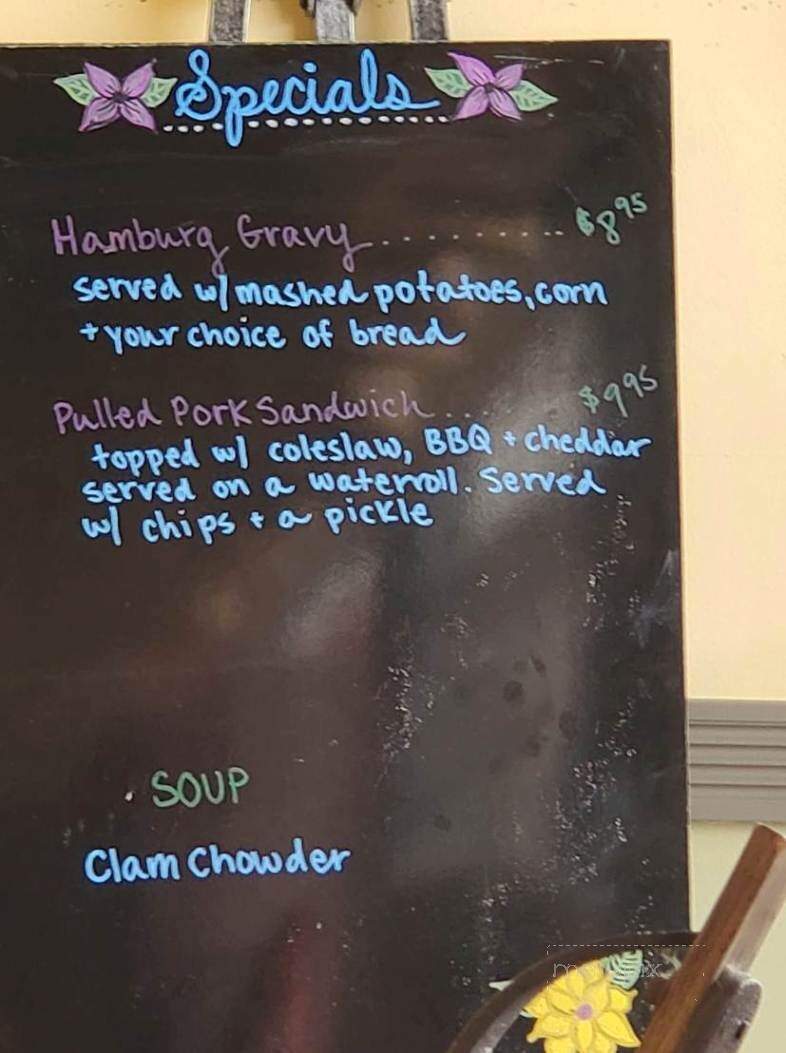 Specials
Hamburg Gravy.............. $8 95
served w/ mashed potatoes, corn
+ your choice of bread
Pulled Pork Sandwich.... $9 95
topped w/ coleslaw, BBQ + cheddar
served on a waterroll. Served
w/ chips + a pickle
SOUP
Clam Chowder